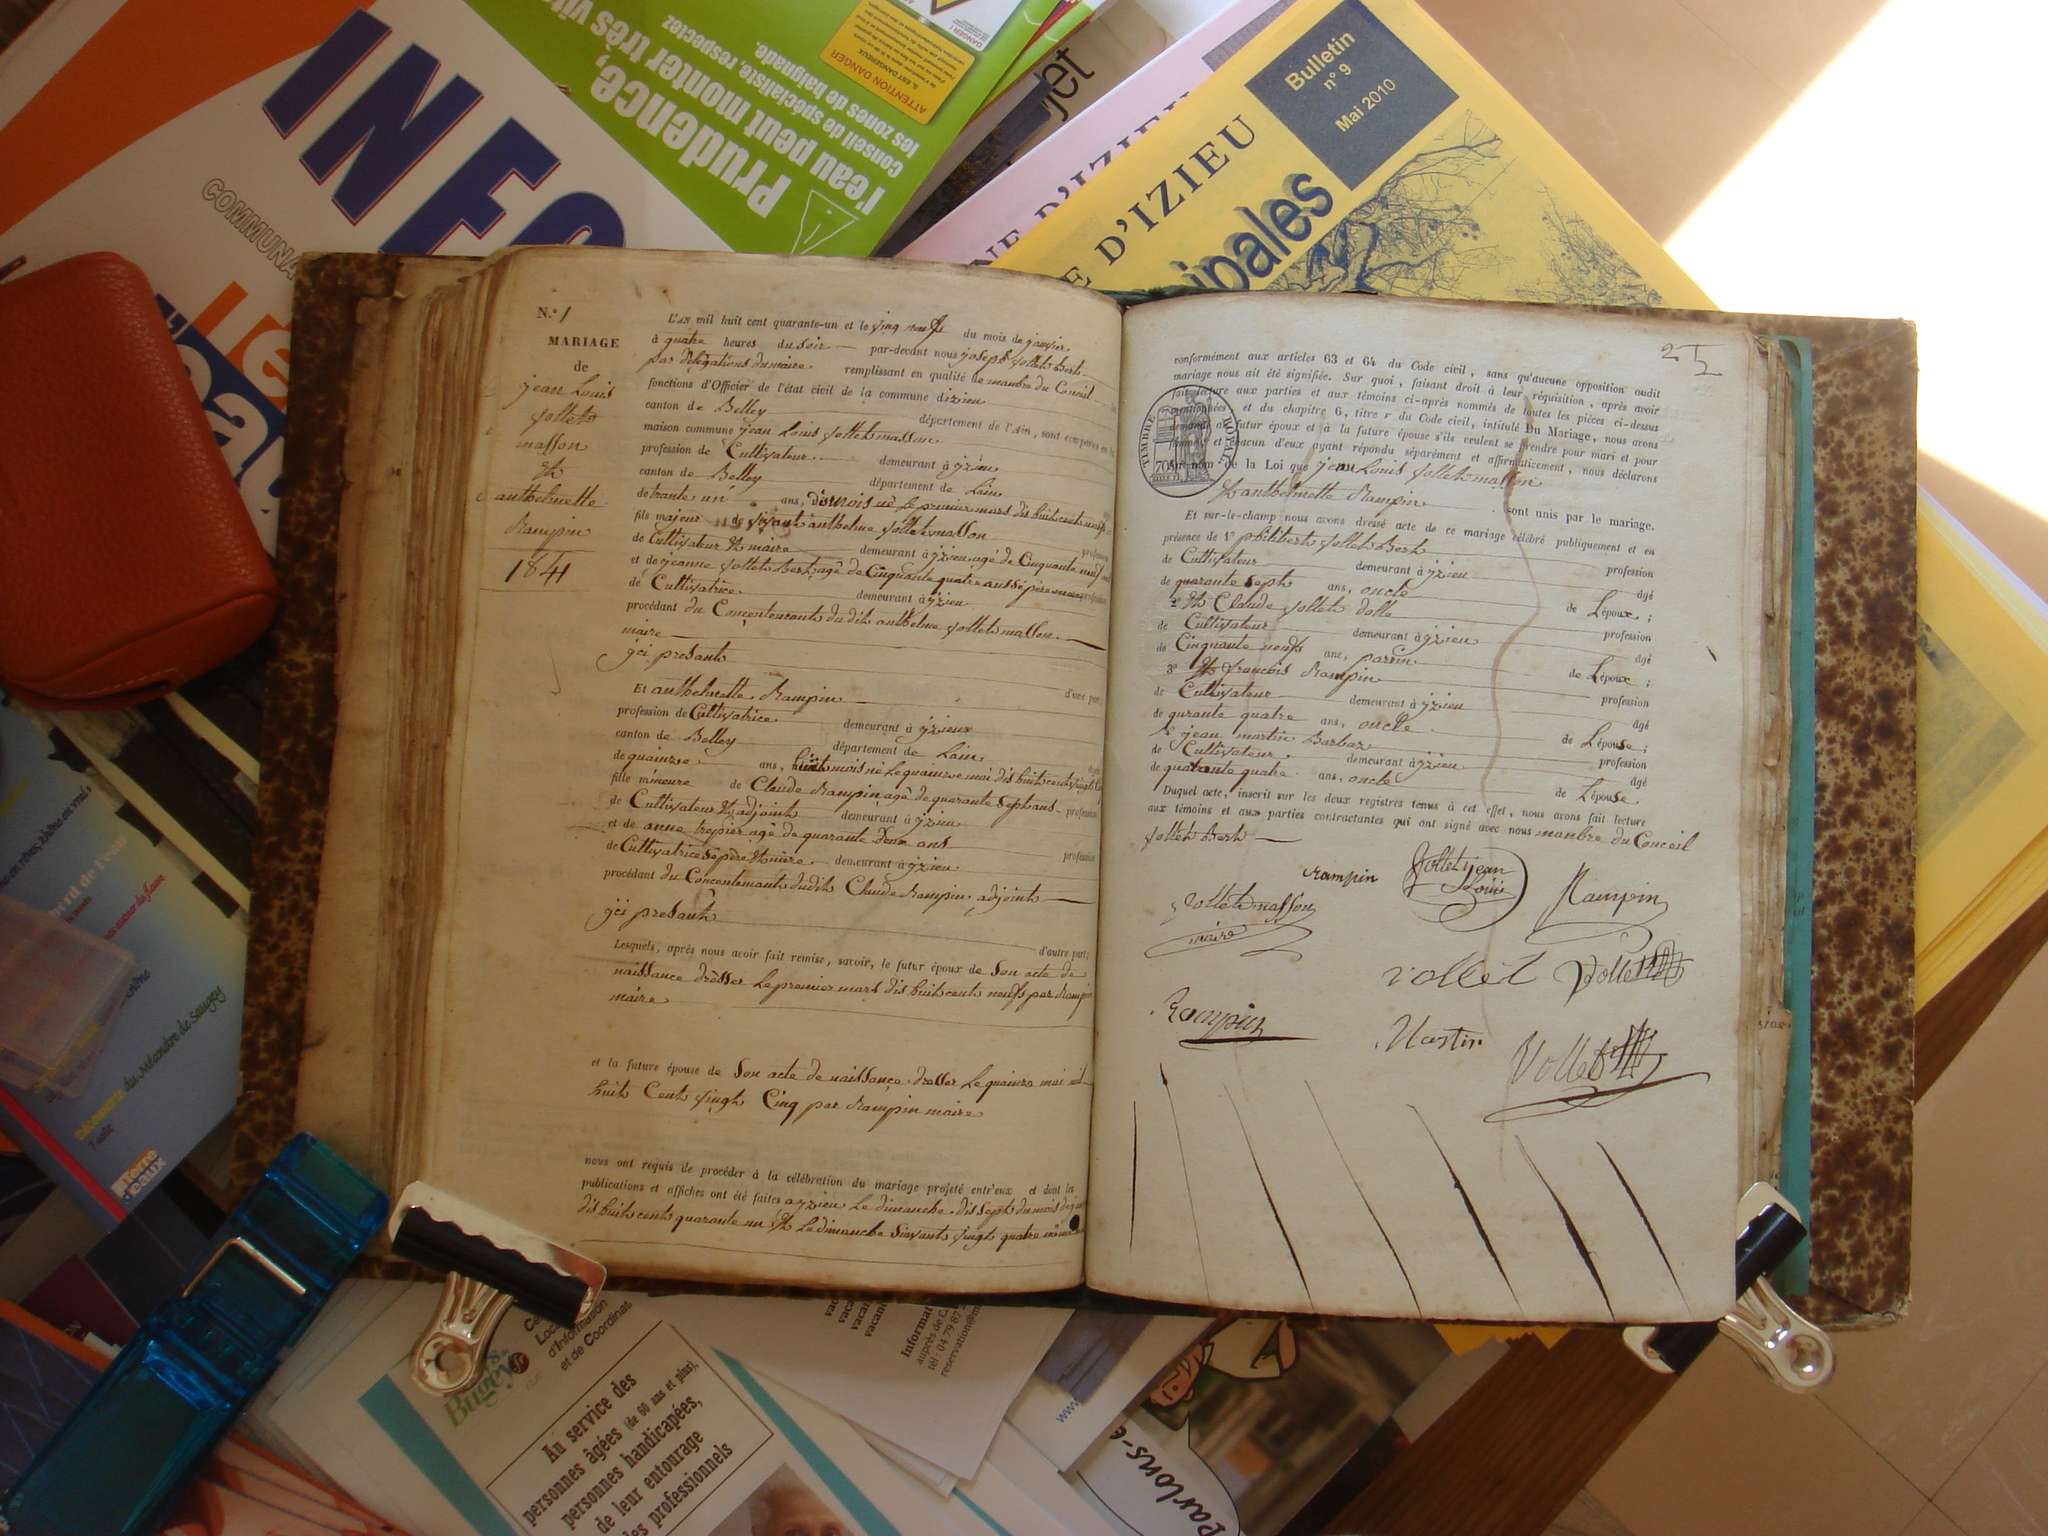 INFO
COMMUNA
Prudence,
l'eau peut monter très vite
conseil de spécialiste, respectez
les zones de baignade.
ATTENTION DANGER
Bulletin
n° 9
Mai 2010
NE D'IZIEU
E D'IZIEU
ipales
N.° 1
MARIAGE
de
jean Louis
Jollet
masson
Et
anthelmette
Rampin
1841
L'AN mil huit cent quarante-un et le vingt neuf du mois de janvier
à quatre heures du soir par-devant nous joseph Vollet Bert
par délégations du maire remplissant en qualité de manbre du Conseil
fonctions d'Officier de l'état civil de la commune d'izieu
canton de Belley département de l'Ain, sont comparus en la
maison commune jean Louis Vollet masson
profession de Cultivateur demeurant à yzieu
canton de Belley département de Lain
de trante un ans, dix mois né le premier mars dis huit cents neuf
fils majeur de vivant anthelme Vollet masson
de Cultivateur Et maire demeurant à yzieu agé de Cinquante neuf
et de jeanne Vollet Bert agé de Cinquante quatre ans sé père et mere
de Cultivatrice demeurant à yzieu
procédant du Concenteurants du dit anthelme Vollet masson
maire
yci presants
Et anthelmette Rampin d'une part
profession de Cultivatrice demeurant à yzieux
canton de Belley département de Lain
de quainze ans, huit mois né Le quainze mai dis huit cents vingt
fille mineure de Claude Rampin agé de quarante sept ans profession
de Cultivateur Et adjoint demeurant à yzieu
et de anne trepier agé de quarante deux ans profession
de Cultivatrice sé père Et mère demeurant à yzieu
procédant du Concentemants dudit Claude Rampin adjoints
yci presants d'autre part;
Lesquels, après nous avoir fait remise, savoir, le futur époux de Son acte de
naissance drésser Le premier mars dis huit cents neuf par Rampin
maire
et la future épouse de Son acte de naissance dresser Le quainze mai mil
huit Cent vingt Cinq par Rampin maire
nous ont requis de procéder à la célébration du mariage projeté entr'eux et dont les
publications et affiches ont été faites a yzieu Le dimanche dis sept du mois de
dis huit cents quarante un Et Le dimanche Suivants vingt quatre
25
conformément aux articles 63 et 64 du Code civil, sans qu'aucune opposition audit
mariage nous ait été signifiée. Sur quoi, faisant droit à leur réquisition, après avoir
fait lecture aux parties et aux témoins ci-après nommés de toutes les pièces ci-dessus
mentionnées et du chapitre 6, titre v du Code civil, intitulé Du Mariage, nous avons
demandé au futur époux et à la future épouse s'ils veulent se prendre pour mari et pour
femme, et chacun d'eux ayant répondu séparément et affirmativement, nous déclarons
au nom de la Loi que jean Louis Vollet masson
TIMBRE ROYAL
Et anthelmette Rampin sont unis par le mariage.
Et sur-le-champ nous avons dressé acte de ce mariage célébré publiquement et en
présence de 1° philibert Vollet Bert profession
de Cultivateur demeurant à yzieu âgé
de quarante Sept ans, oncle de L'époux;
2° Et Claude Vollet dolle profession
de Cultivateur demeurant à yzieu âgé
de Cinquante neuf ans, parin de L'époux;
3° Et françois Rampin profession
de Cultivateur demeurant à yzieu âgé
de qurante quatre ans, oncle de L'épouse;
jean martin Barbaz profession
de Cultivateur demeurant à yzieu âgé
de quatante quatre ans, oncle de L'épouse.
Duquel acte, inscrit sur les deux registres tenus à cet effet, nous avons fait lecture
aux témoins et aux parties contractantes qui ont signé avec nous manbre du Conceil
Vollet Bert
rampin Vollet jean Rampin
Louis
Vollet masson
maire
vollet Vollet
Rampin Martin Vollet
Découverte du Méandre de Saugey
7 août
Terre
d'eaux
Bugey
d'Information
et de Coordinat
Au service des
personnes âgées (de 60 ans et plus),
personnes handicapées,
de leur entourage
professionnels
auprès de C
tél : 04 79 87
reservation@m
www.
Parlons-